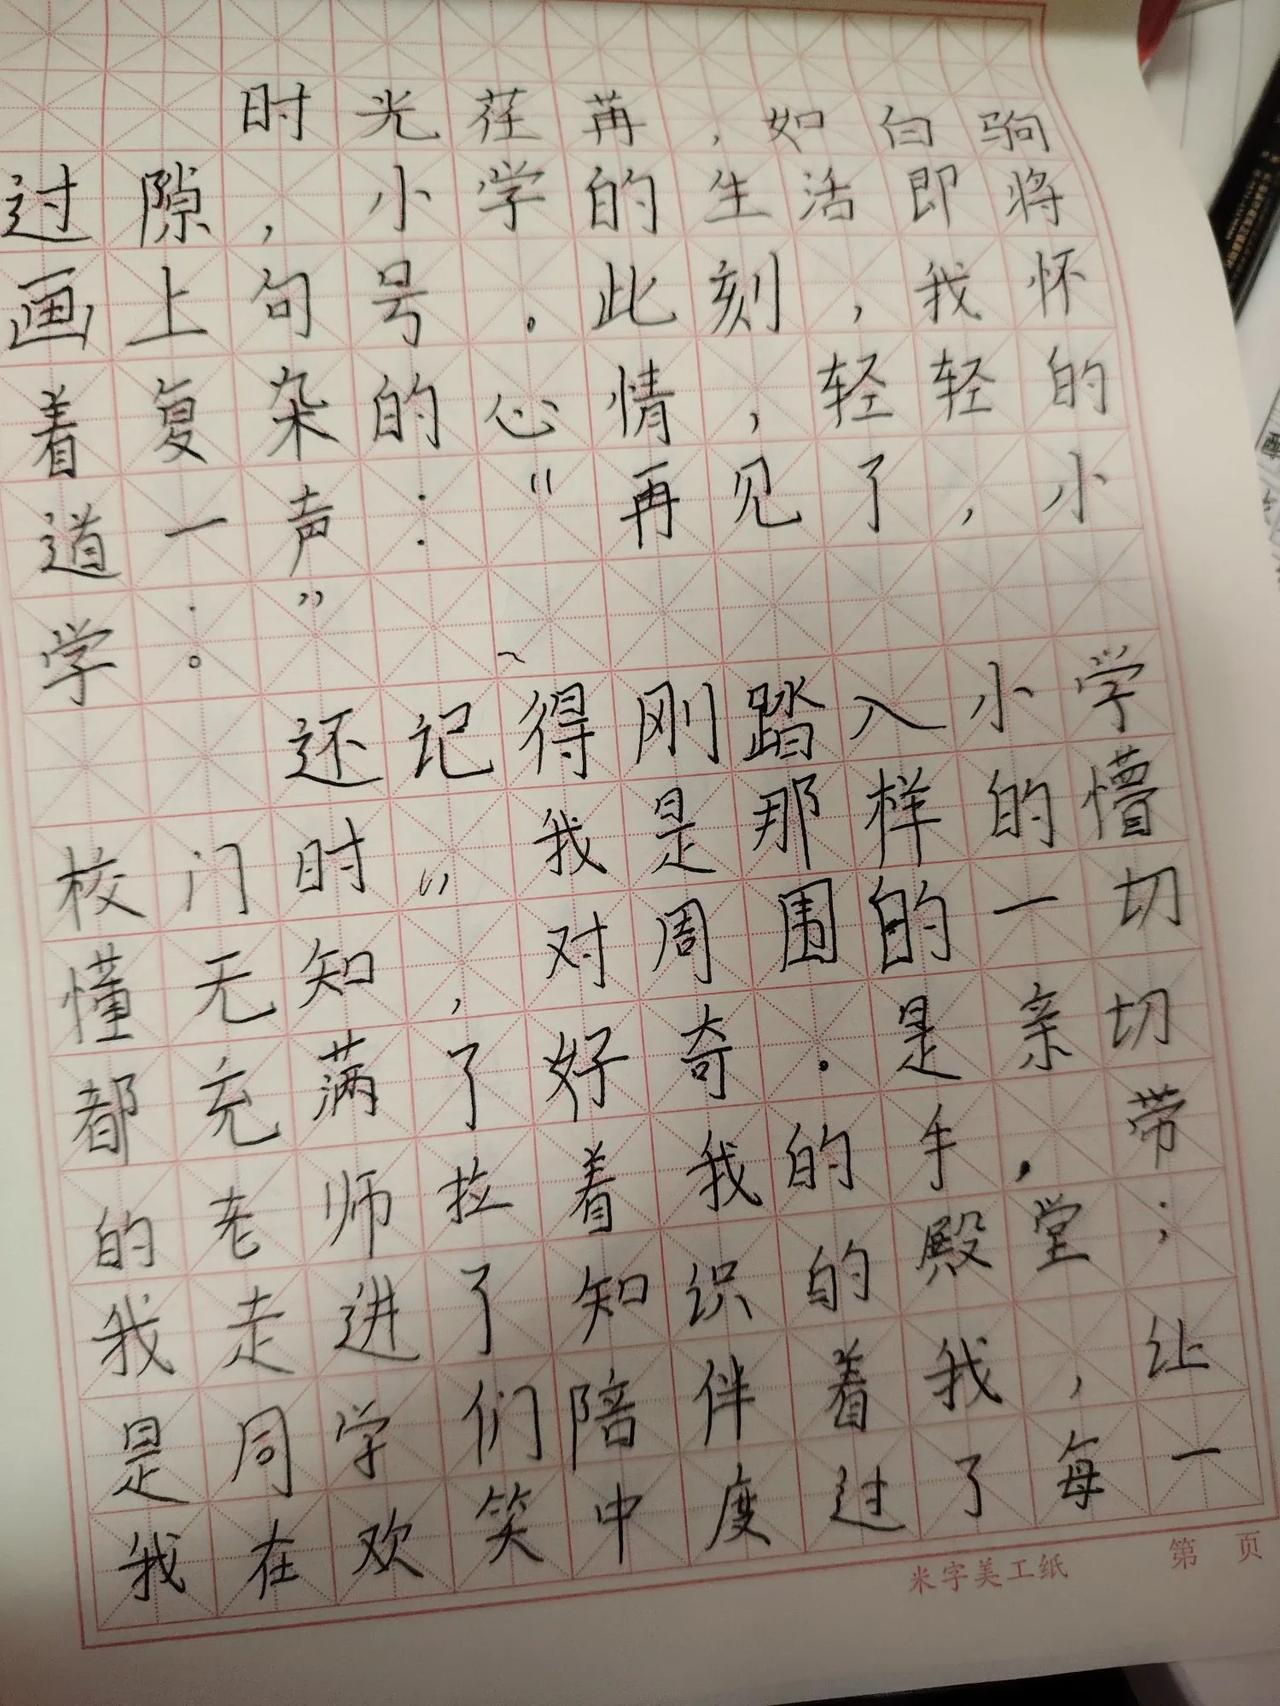 时光荏苒，如白驹
过隙，小学的生活即将
画上句号。此刻，我怀
着复杂的心情，轻轻的
道一声：“再见了，小
学：。”
还记得刚踏入小学
校门时”我是那样的懵
懂无知，对周围的一切
都充满了好奇．是亲切
的老师拉着我的手，带
我走进了知识的殿堂；
是同学们陪伴着我，让
我在欢笑中度过了每一
米字美工纸 第 页